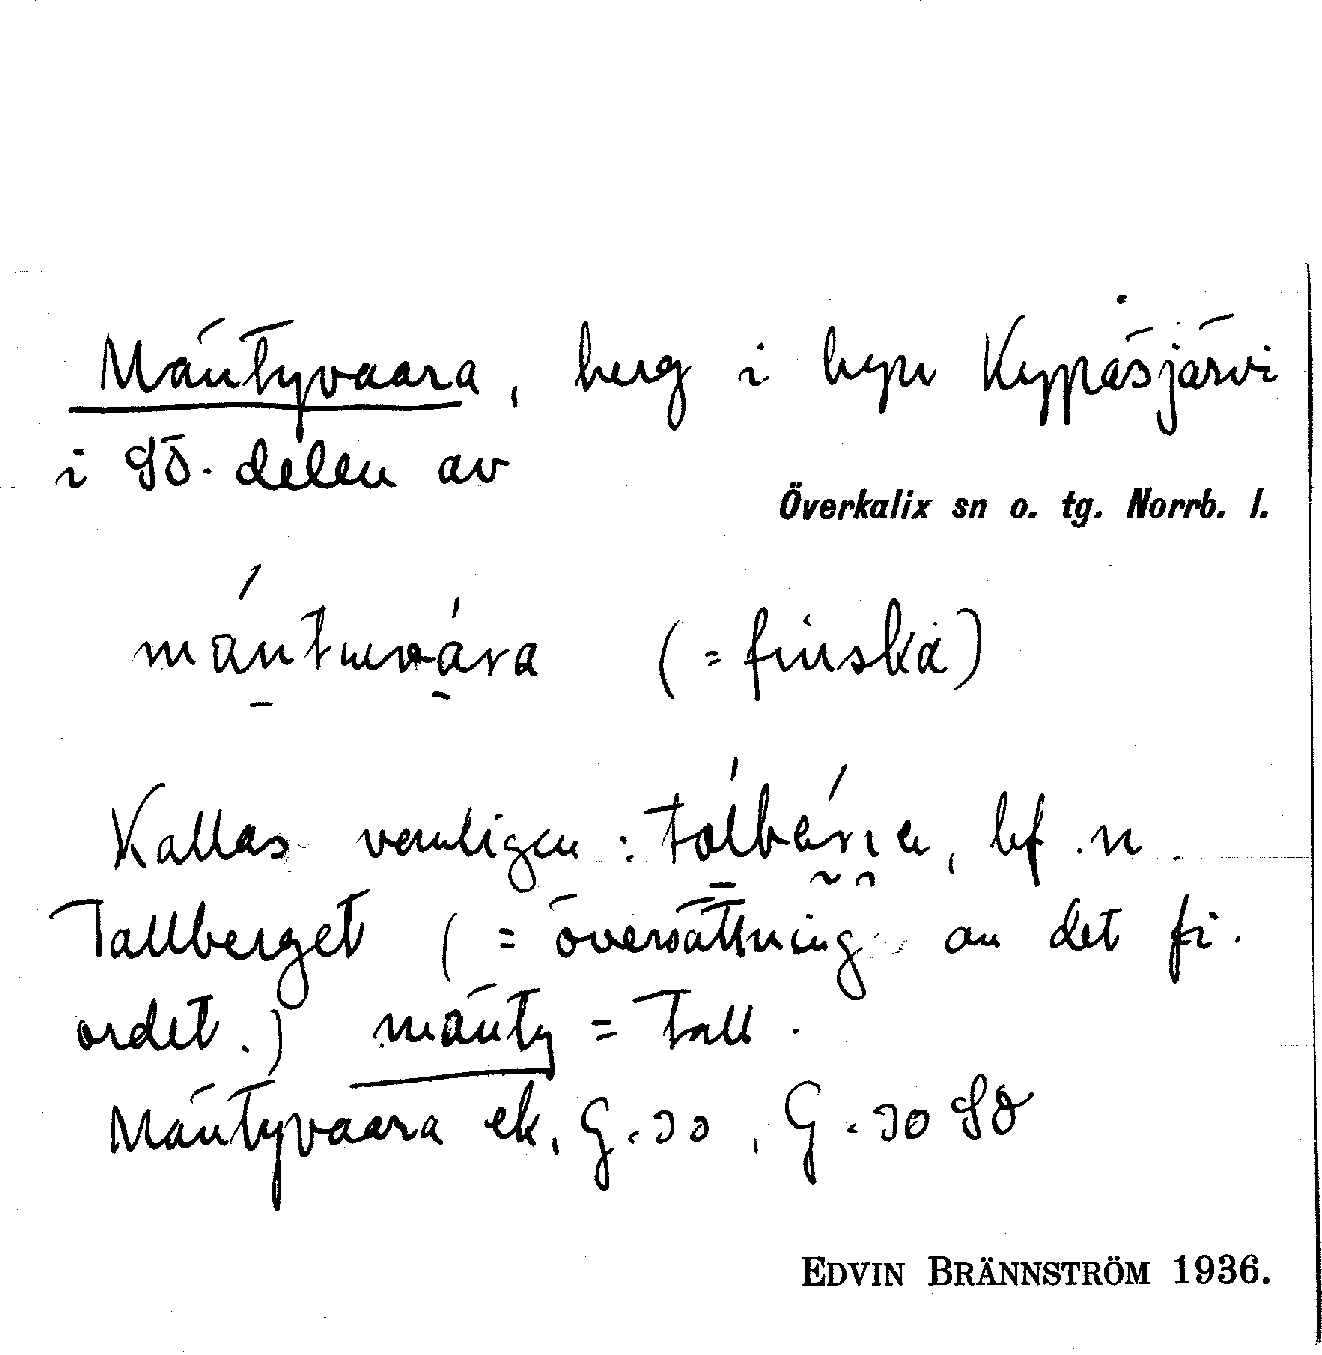 Mäntyvaara, berg i byn Kypåsjärvi
i SÖ. delen av
Överkalix sn o. tg. Norrb. l.
(= finska)
Kallas vanligen: bf. n.
Tallberget (= översättning av det fi.
ordet.) mänty = tall.
Mäntyvaara ek. G. SO
EDVIN BRÄNNSTRÖM 1936.